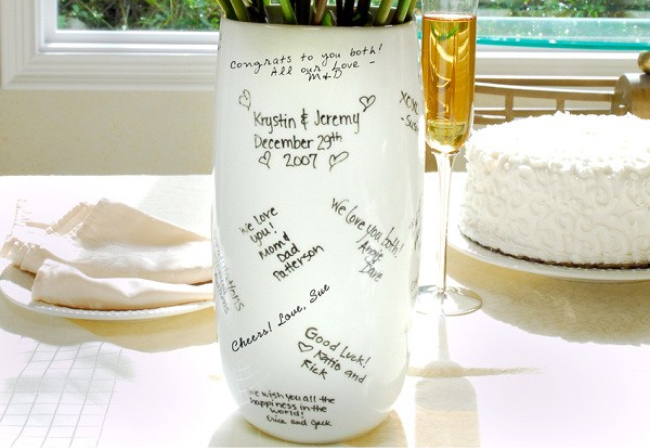 Congrats to you both!
All our Love -
M&D
XOXO
Krystin & Jeremy
December 29th
2007
We love
you!
Mom &
Dad
Patterson
We love you both!
Annie
&
Dave
Cheers! Love, Sue
Good Luck!
Katie and
Rick
We wish you all the
happiness in the
world!
Erica and Jack